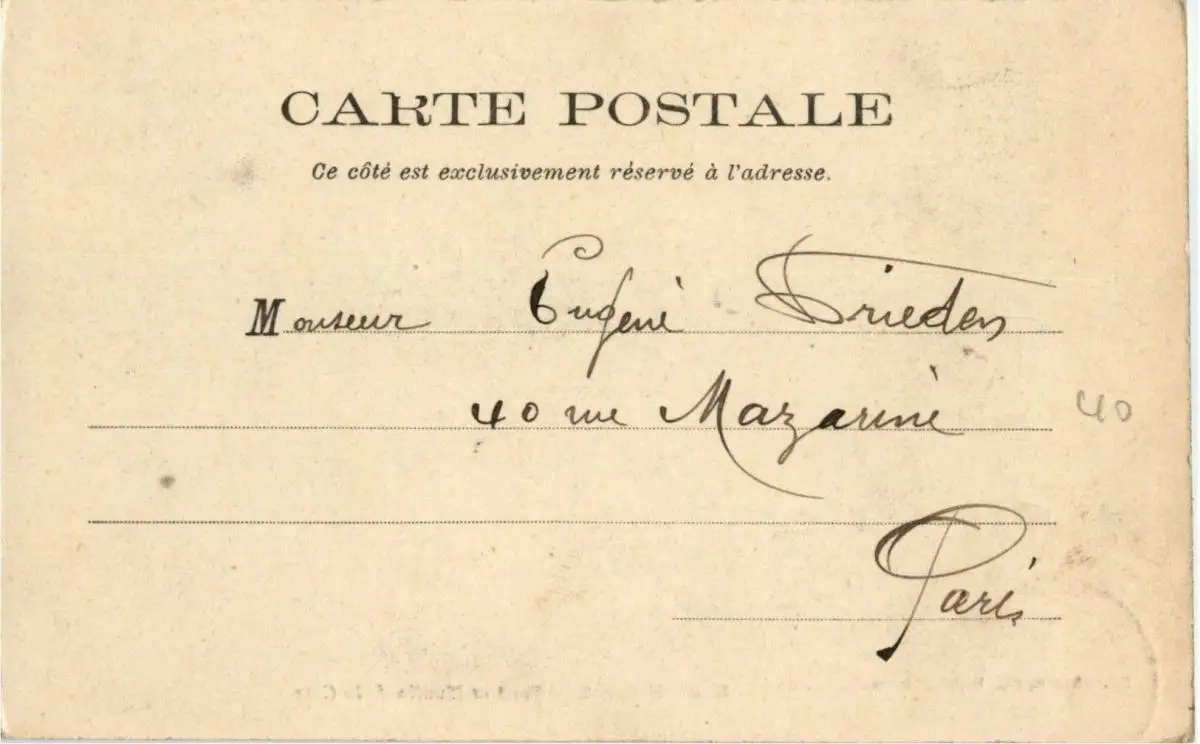 CARTE POSTALE
Ce côté est exclusivement réservé à l'adresse.
Monsieur Eugène Frieden
40 rue Mazarine 40
Paris